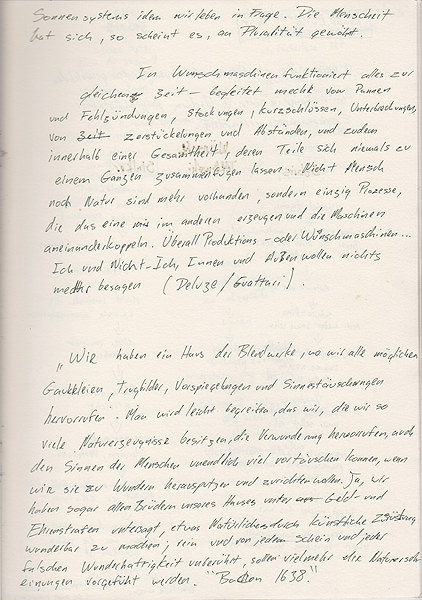 Sonnensystems idem wir leben in Frage. Die Menscheit
hat sich, so scheint es, an Pluralität gewöhnt.
In Wunschmaschinen funktioniert alles zur
gleichen Zeit – begleitet mechk von Pannen
und Fehlzündungen, Stockungen, Kurzschlüssen, Unterbrechungen,
von Zeit Zerstückelungen und Abständen, und zudem
innerhalb einer Gesamtheit, deren Teile sich niemals zu
einem Ganzen zusammenfügen lassen. Nicht Mensch
noch Natur sind mehr vorhanden, sondern einzig Prozesse,
die das eine im anderen erzeugen und die Maschinen
aneinanderkoppeln. Überall Produktions- oder Wunschmaschinen...
Ich und Nicht-Ich, Innen und Außen wollen nichts
mehr besagen (Deluze/Guattari).
„Wir haben ein Haus der Blendwerke, wo wir alle möglichen
Gaukleien, Trugbilder, Vorspiegelungen und Sinnestäuschungen
hervorrufen. Man wird leicht begreifen, das wir, die wir so
viele Naturerzeugnisse besitzen, die Verwunderung hervorrufen, auch
den Sinnen der Menschen unendlich viel vortäuschen können, wenn
wir sie zu Wundern herausputzen und zurichten wollen. Ja, wir
haben sogar allen Brüdern unseres Hauses unter Geld- und
Ehrenstrafen untersagt, etwas Natürliches durch künstliche Zurüstung
wunderbar zu machen; rein und von jedem Schein und jeder
falschen Wunderhaftigkeit unberührt, sollen vielmehr die Naturersch-
einungen vorgeführt werden." Bacon 1638."